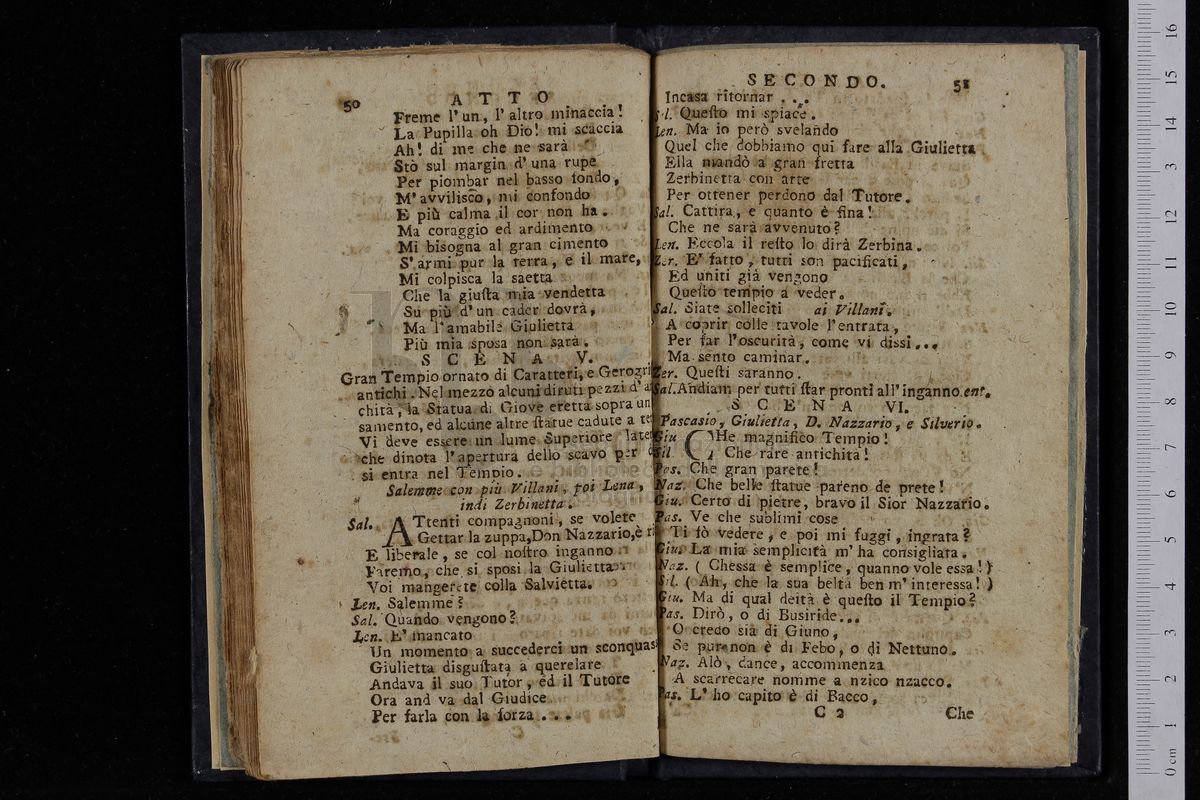 50
ATTO
Freme l' un, l' altro minaccia!
La Pupilla oh Dio! mi scaccia
Ah! di me che ne sarà
Stò sul margin d' una rupe
Per piombar nel basso fondo,
M' avvilisco, mi confondo
E più calma il cor non ha.
Ma coraggio ed ardimento
Mi bisogna al gran cimento
S' armi pur la terra, e il mare,
Mi colpisca la saetta
Che la giuſta mia vendetta
Su più d' un cader dovrà,
Ma l' amabile Giulietta
Più mia sposa non sarà.
SCENA V.
Gran Tempio ornato di Caratteri, e Gerogri
antichi. Nel mezzo alcuni diruti pezzi d' a
chità, la Statua di Giove eretta sopra un
samento, ed alcune altre ſtatue cadute a te
Vi deve essere un lume Superiore late
che dinota l' apertura dello scavo per
si entra nel Tempio.
Salemme con più Villani, poi Lena,
indi Zerbinetta.
Sal. ATtenti compagnoni, se volete
Gettar la zuppa, Don Nazzario, è
E liberale, se col noſtro inganno
Faremo, che si sposi la Giulietta
Voi mangerete colla Salvietta.
Len. Salemme?
Sal. Quando vengono?
Len. E' mancato
Un momento a succederci un sconquas
Giulietta disguſtata a querelare
Andava il suo Tutor, ed il Tutore
Ora and va dal Giudice
Per farla con la forza ...
SECONDO.
51
Incasa ritornar ...
Sil. Queſto mi spiace.
Len. Ma io però svelando
Quel che dobbiamo qui fare alla Giulietta
Ella mandò a gran fretta
Zerbinetta con arte
Per ottener perdono dal Tutore.
Sal. Cattira, e quanto è fina!
Che ne sarà avvenuto?
Len. Eccola il reſto lo dirà Zerbina.
Zer. E' fatto, tutti son pacificati,
Ed uniti già vengono
Queſto tempio a veder.
Sal. Siate solleciti ai Villani.
A coprir colle tavole l' entrata,
Per far l' oscurità, come vi dissi...
Ma sento caminar.
Zer. Queſti saranno.
Sal. Andiam per tutti ſtar pronti all' inganno. ent.
SCENA VI.
Pascasio, Giulietta, D. Nazzario, e Silverio.
Giu CHe magnifico Tempio!
Sil. Che rare antichità!
Pas. Che gran parete!
Naz. Che belle ſtatue pareno de prete!
Giu. Certo di pietre, bravo il Sior Nazzario.
Pas. Ve che sublimi cose
Ti fò vedere, e poi mi fuggi, ingrata?
Giu. La mia semplicità m' ha consigliata.
Naz. ( Chessa è semplice, quanno vole essa! )
Sil. ( Ah, che la sua beltà ben m' interessa! )
Giu. Ma di qual deità è queſto il Tempio?
Pas. Dirò, o di Busiride...
O credo sia di Giuno,
Se pur non è di Febo, o di Nettuno.
Naz. Alò, dance, accommenza
A scarrecare nomme a nzico nzacco.
Pas. L' ho capito è di Bacco,
C 2
Che